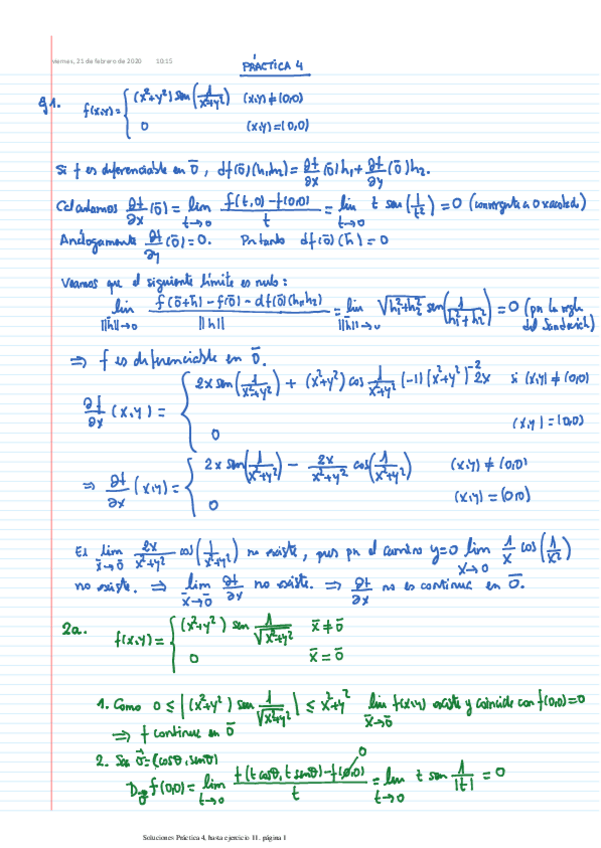 viernes, 21 de febrero de 2020 10:15
PRÁCTICA 4
Ej 1. f(x,y) = { (x²+y²) sen(1/(x²+y²)) (x,y) ≠ (0,0)
0 (x,y) = (0,0)
Si f es diferenciable en 0̄, df(0̄)(h₁,h₂) = ∂f/∂x (0̄) h₁ + ∂f/∂y (0̄) h₂.
Calculamos ∂f/∂x (0̄) = lim_{t→0} (f(t,0) − f(0,0))/t = lim_{t→0} t sen(1/t²) = 0 (convergente a 0 x acotado)
Análogamente ∂f/∂y (0̄) = 0. Por tanto df(0̄)(h̄) = 0
Veamos que el siguiente límite es nulo:
lim_{||h̄||→0} (f(0̄+h̄) − f(0̄) − df(0̄)(h₁,h₂))/||h̄|| = lim_{||h̄||→0} √(h₁²+h₂²) sen(1/(h₁²+h₂²)) = 0 (por la regla
del Sandwich)
⇒ f es diferenciable en 0̄.
∂f/∂x (x,y) = { 2x sen(1/(x²+y²)) + (x²+y²) cos 1/(x²+y²) (−1)(x²+y²)⁻² 2x si (x,y) ≠ (0,0)
0 (x,y) = (0,0)
⇒ ∂f/∂x (x,y) = { 2x sen(1/(x²+y²)) − 2x/(x²+y²) cos(1/(x²+y²)) (x,y) ≠ (0,0)
0 (x,y) = (0,0)
El lim_{x̄→0̄} 2x/(x²+y²) cos(1/(x²+y²)) no existe, pues por el camino y=0 lim_{x→0} 1/x cos(1/x²)
no existe. ⇒ lim_{x̄→0̄} ∂f/∂x no existe. ⇒ ∂f/∂x no es continua en 0̄.
2a. f(x,y) = { (x²+y²) sen 1/√(x²+y²) x̄ ≠ 0̄
0 x̄ = 0̄
1. Como 0 ≤ |(x²+y²) sen 1/√(x²+y²)| ≤ x²+y² lim_{x̄→0̄} f(x,y) existe y coincide con f(0,0) = 0
⇒ f continua en 0̄
2. Sea v̄ = (cosθ, senθ)
D_v̄ f(0,0) = lim_{t→0} (f(t cosθ, t senθ) − f(0,0))/t = lim_{t→0} t sen 1/|t| = 0
0
Soluciones Práctica 4, hasta ejercicio 11. página 1